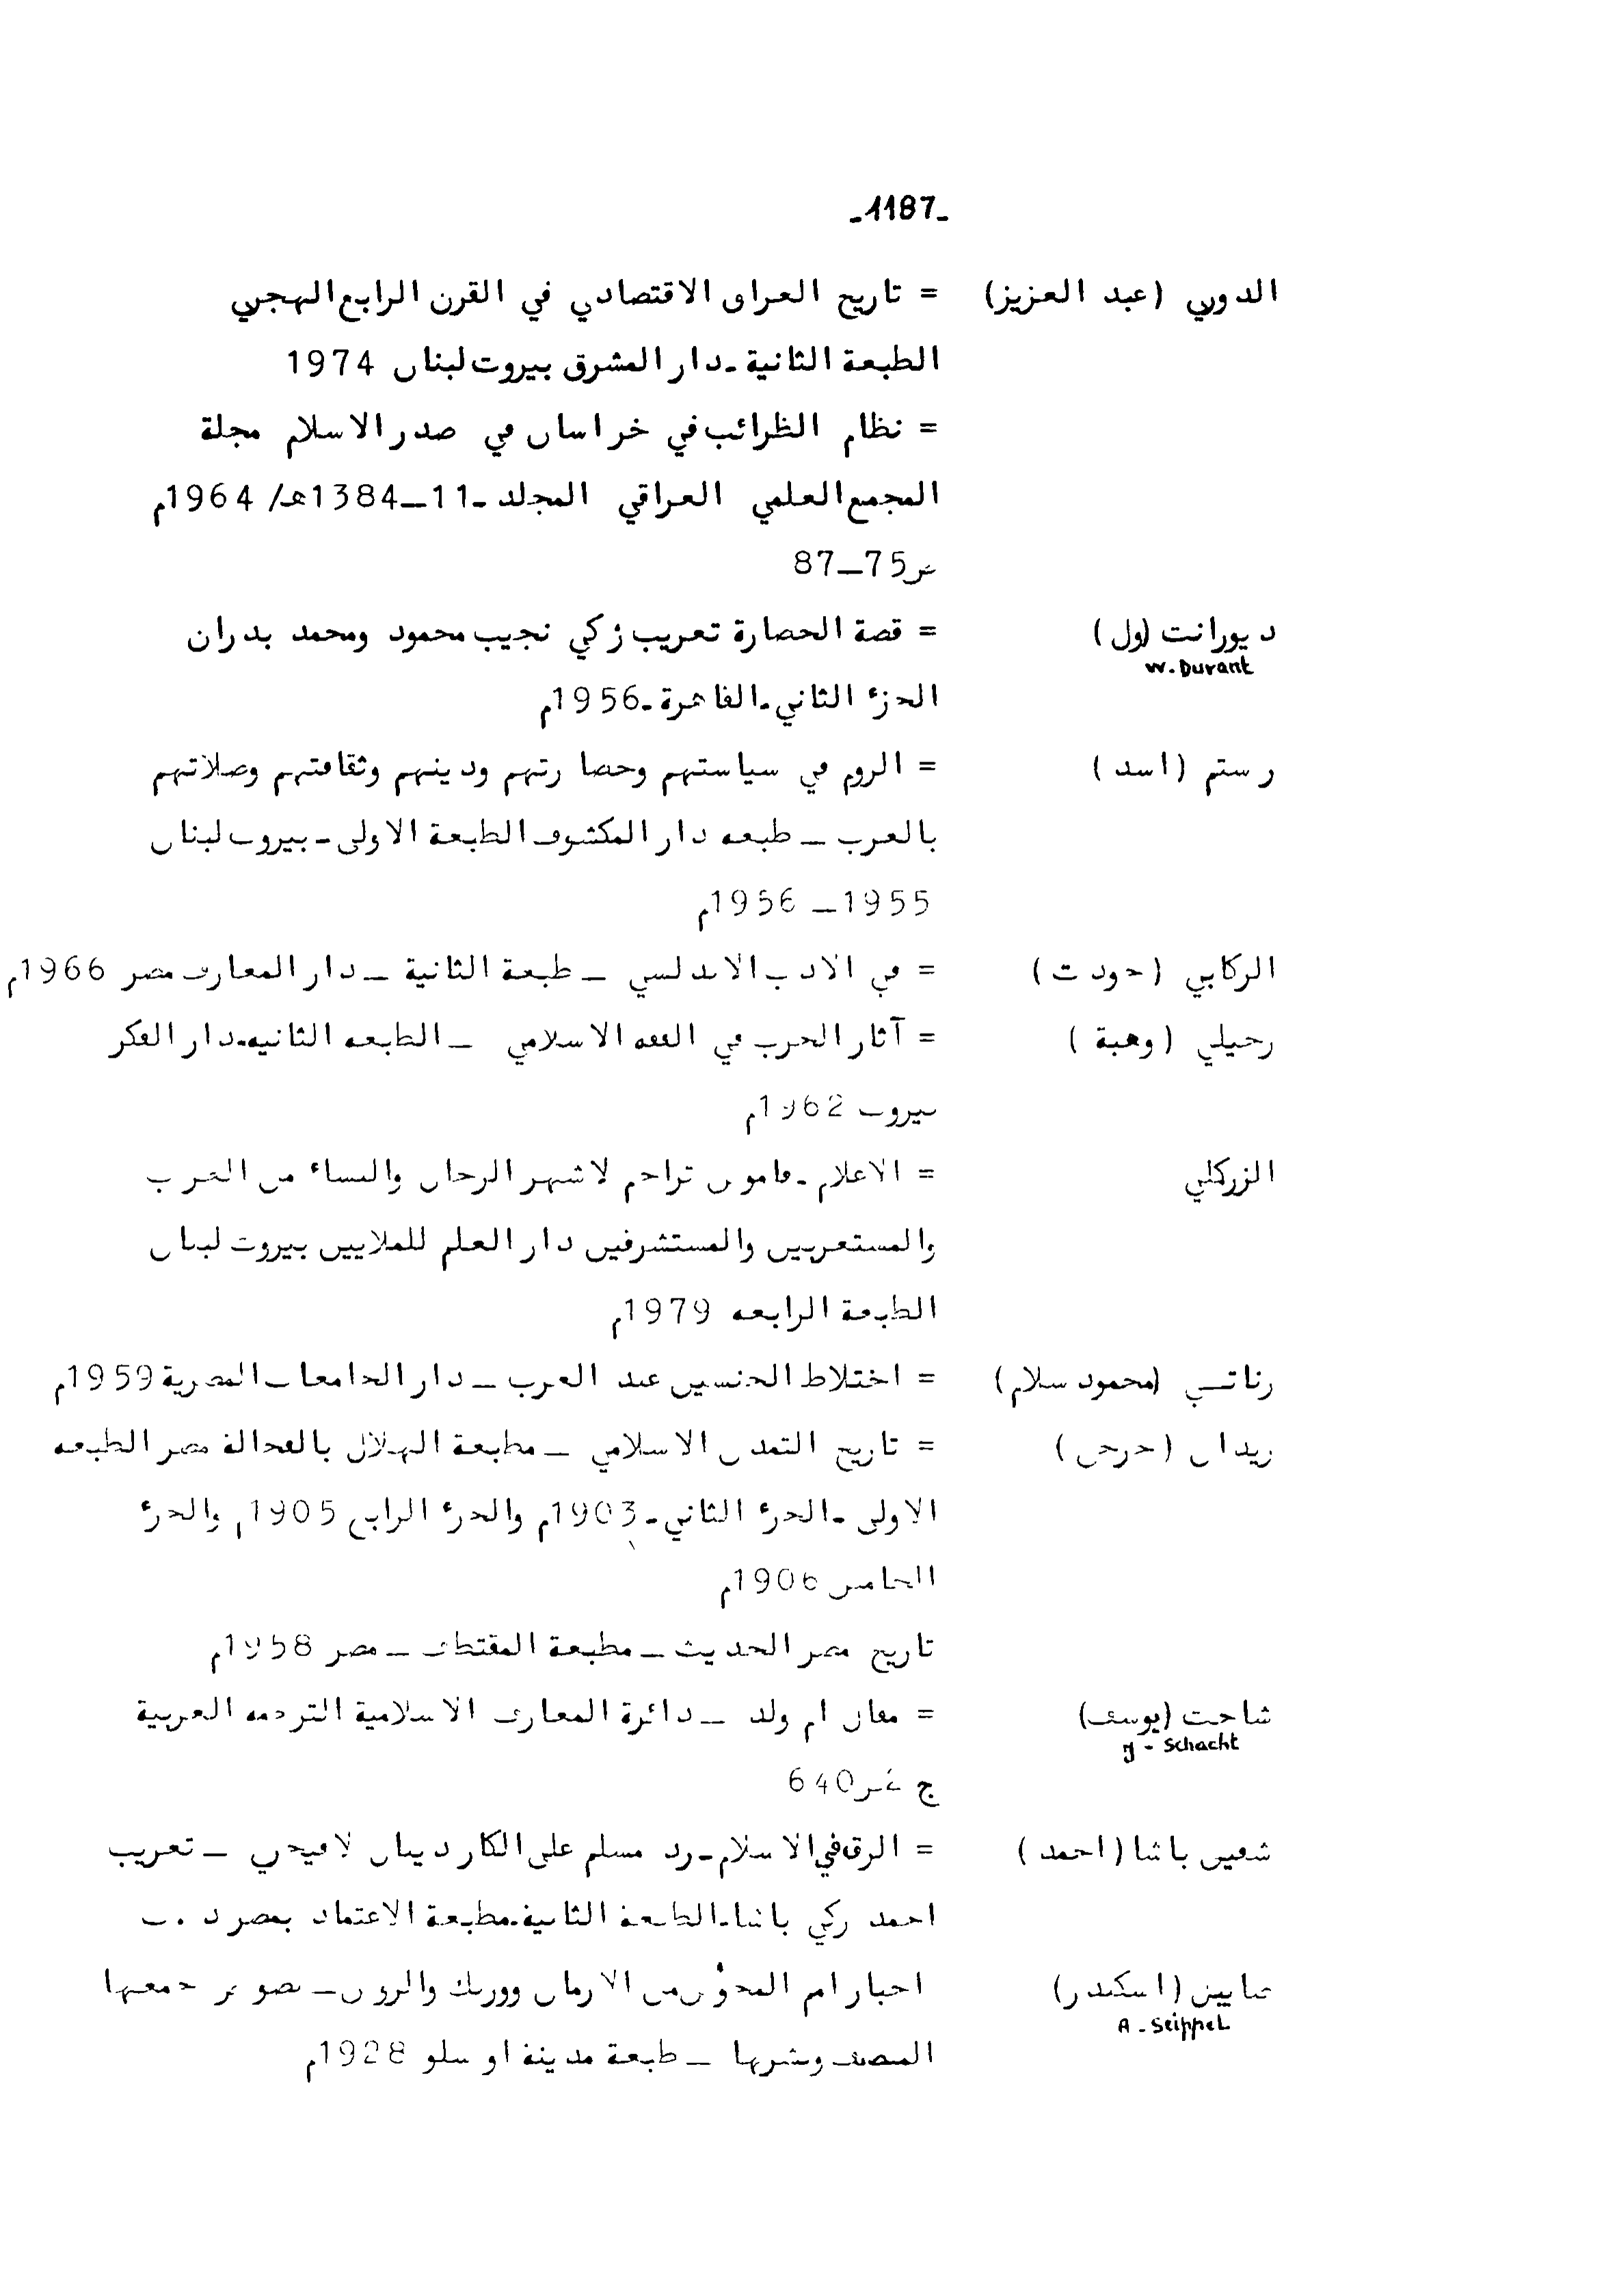 -1187-
الدوري (عبد العزيز) = تاريخ العراق الاقتصادي في القرن الرابع الهجري
الطبعة الثانية ـ دار المشرق بيروت لبنان 1974
= نظام الظرائب في خراسان في صدر الاسلام مجلة
المجمع العلمي العراقي المجلد ـ 11 ـ 1384هـ/ 1964م
ص75ـ87
ديورانت (ول) = قصة الحضارة تعريب زكي نجيب محمود ومحمد بدران
W. Durant
الجزء الثاني ـ القاهرة ـ 1956م
رستم (اسد) = الروم في سياستهم وحضارتهم ودينهم وثقافتهم وصلاتهم
بالعرب ـ طبعة دار المكشوف الطبعة الاولى ـ بيروت لبنان
1955 ـ 1956م
الركابي (جودت) = في الادب الاندلسي ـ طبعة الثانية ـ دار المعارف مصر 1966م
رحيلي (وهبة) = آثار الحرب في الفقه الاسلامي ـ الطبعة الثانية ـ دار الفكر
بيروت 1962م
الزركلي = الاعلام ـ قاموس تراجم لاشهر الرجال والنساء من العرب
والمستعربين والمستشرقين دار العلم للملايين بيروت لبنان
الطبعة الرابعة 1979م
زناتي (محمود سلام) = اختلاط الجنسين عند العرب ـ دار الجامعات المصرية 1959م
زيدان (جرجي) = تاريخ التمدن الاسلامي ـ مطبعة الهلال بالفجالة مصر الطبعة
الاولى ـ الجزء الثاني ـ 1903م والجزء الرابع 1905م والجزء
الخامس 1906م
تاريخ مصر الحديث ـ مطبعة المقتطف ـ مصر 1958م
شاخت (يوسف) = مقال ام ولد ـ دائرة المعارف الاسلامية الترجمة العربية
J - Schacht
ج ص640
شفيق باشا (احمد) = الرق في الاسلام ـ رد مسلم على الكاردينال لافيجري ـ تعريب
احمد زكي باشا ـ الطبعة الثانية ـ مطبعة الاعتماد بمصر د . ت
(اسكندر) اخبار امم المجوس من الارمان وورنك والروس ـ نصوص جمعها
A - Seippel
المصنف ونشرها ـ طبعة مدينة اوسلو 1928م